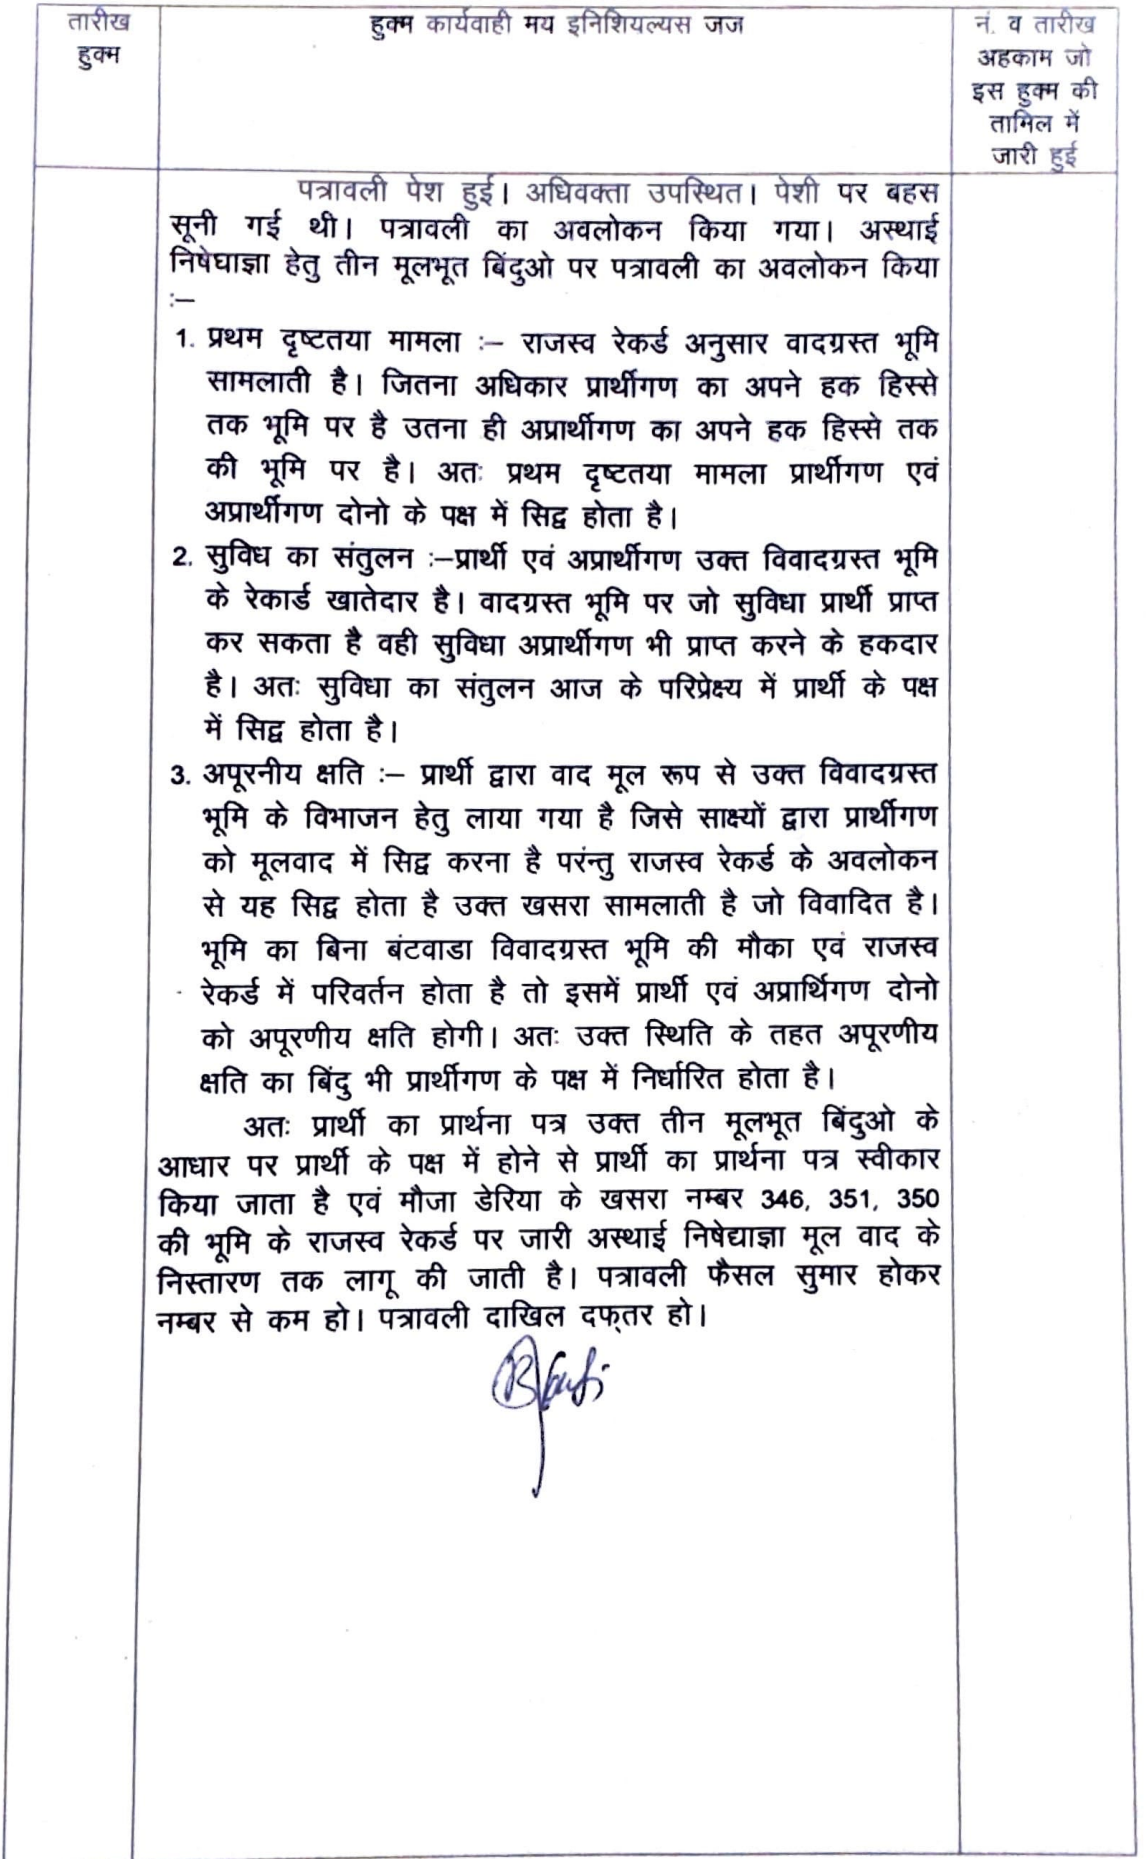 तारीख
हुक्म
हुक्म कार्यवाही मय इनिशियल्यस जज
नं. व तारीख
अहकाम जो
इस हुक्म की
तामिल में
जारी हुई
पत्रावली पेश हुई। अधिवक्ता उपस्थित। पेशी पर बहस
सूनी गई थी। पत्रावली का अवलोकन किया गया। अस्थाई
निषेघाज्ञा हेतु तीन मूलभूत बिंदुओ पर पत्रावली का अवलोकन किया
:–
1. प्रथम दृष्टतया मामला :– राजस्व रेकर्ड अनुसार वादग्रस्त भूमि
सामलाती है। जितना अधिकार प्रार्थीगण का अपने हक हिस्से
तक भूमि पर है उतना ही अप्रार्थीगण का अपने हक हिस्से तक
की भूमि पर है। अतः प्रथम दृष्टतया मामला प्रार्थीगण एवं
अप्रार्थीगण दोनो के पक्ष में सिद्व होता है।
2. सुविध का संतुलन :–प्रार्थी एवं अप्रार्थीगण उक्त विवादग्रस्त भूमि
के रेकार्ड खातेदार है। वादग्रस्त भूमि पर जो सुविधा प्रार्थी प्राप्त
कर सकता है वही सुविधा अप्रार्थीगण भी प्राप्त करने के हकदार
है। अतः सुविधा का संतुलन आज के परिप्रेक्ष्य में प्रार्थी के पक्ष
में सिद्व होता है।
3. अपूरनीय क्षति :– प्रार्थी द्वारा वाद मूल रूप से उक्त विवादग्रस्त
भूमि के विभाजन हेतु लाया गया है जिसे साक्ष्यों द्वारा प्रार्थीगण
को मूलवाद में सिद्व करना है परंन्तु राजस्व रेकर्ड के अवलोकन
से यह सिद्व होता है उक्त खसरा सामलाती है जो विवादित है।
भूमि का बिना बंटवाडा विवादग्रस्त भूमि की मौका एवं राजस्व
रेकर्ड में परिवर्तन होता है तो इसमें प्रार्थी एवं अप्रार्थिगण दोनो
को अपूरणीय क्षति होगी। अतः उक्त स्थिति के तहत अपूरणीय
क्षति का बिंदु भी प्रार्थीगण के पक्ष में निर्धारित होता है।
अतः प्रार्थी का प्रार्थना पत्र उक्त तीन मूलभूत बिंदुओ के
आधार पर प्रार्थी के पक्ष में होने से प्रार्थी का प्रार्थना पत्र स्वीकार
किया जाता है एवं मौजा डेरिया के खसरा नम्बर 346, 351, 350
की भूमि के राजस्व रेकर्ड पर जारी अस्थाई निषेद्याज्ञा मूल वाद के
निस्तारण तक लागू की जाती है। पत्रावली फैसल सुमार होकर
नम्बर से कम हो। पत्रावली दाखिल दफ्तर हो।